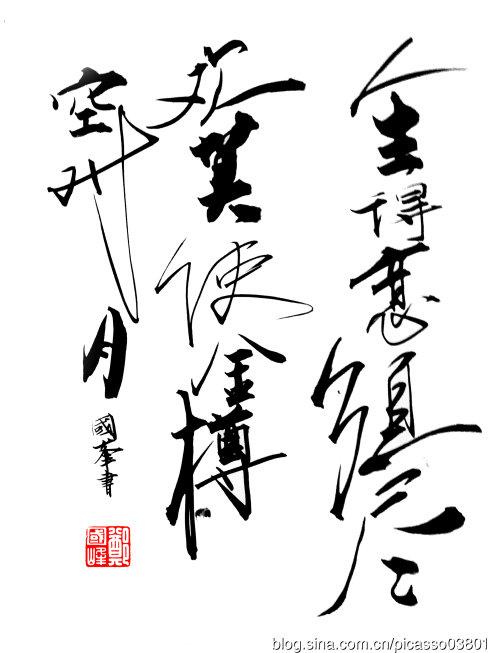 人生得意須尽
欢莫使金樽
空对月
國峯書
鄭國峰
blog.sina.com.cn/picasso03801